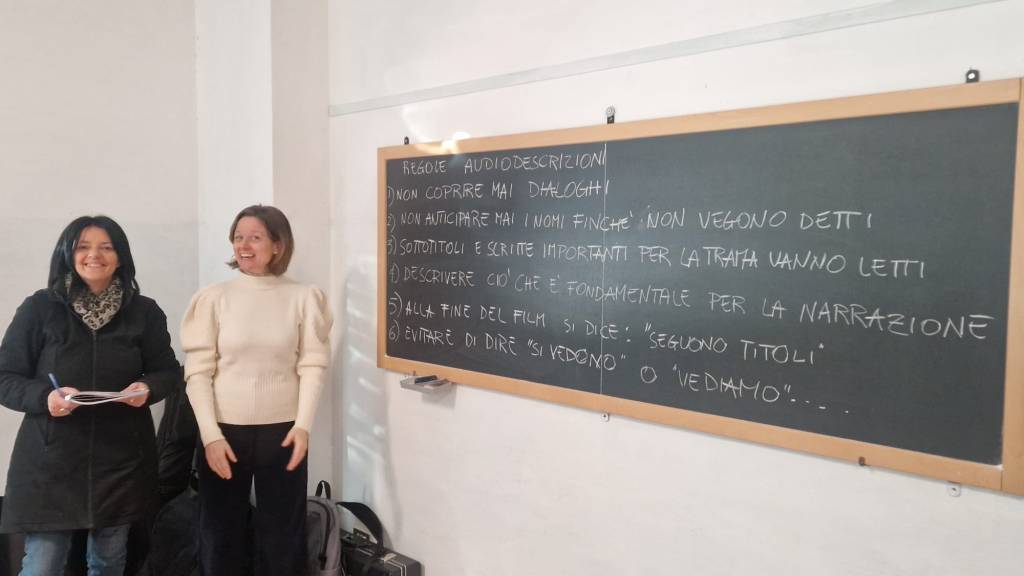 REGOLE AUDIODESCRIZIONI
1) NON COPRIRE MAI DIALOGHI
2) NON ANTICIPARE MAI I NOMI FINCHE' NON VEGONO DETTI
3) SOTTOTITOLI E SCRITTE IMPORTANTI PER LA TRAMA VANNO LETTI
4) DESCRIVERE CIO' CHE E' FONDAMENTALE PER LA NARRAZIONE
5) ALLA FINE DEL FILM SI DICE: "SEGUONO TITOLI"
6) EVITARE DI DIRE "SI VEDONO" O "VEDIAMO"....